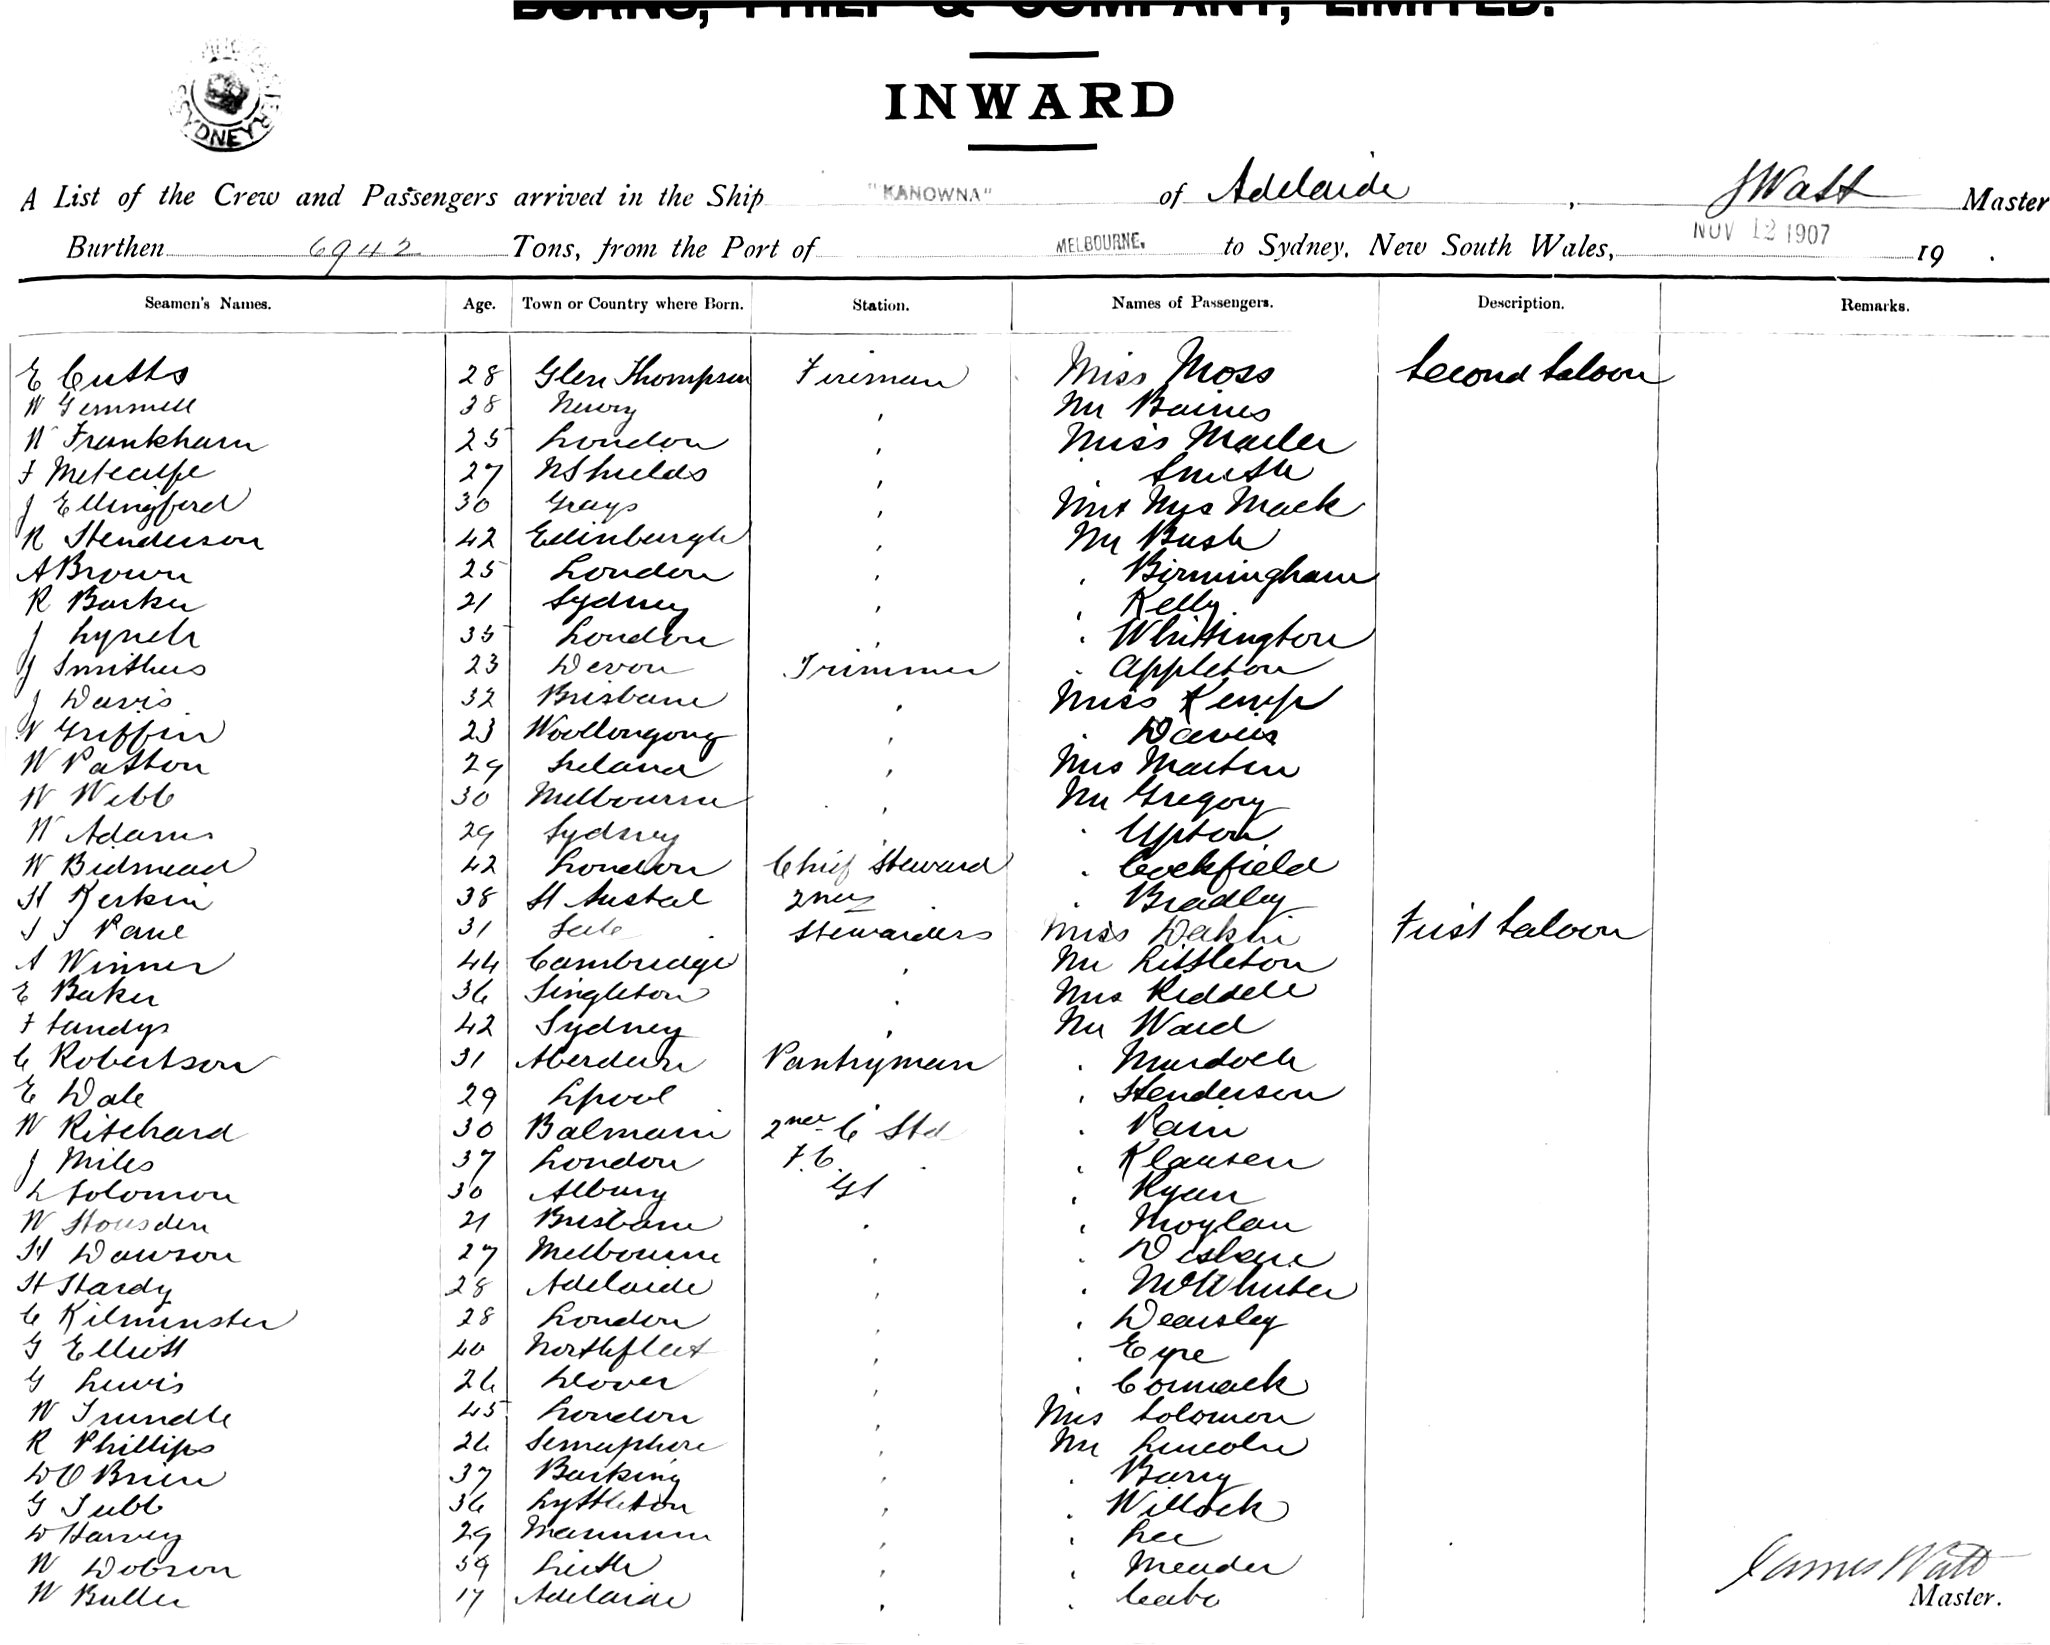 BURNS, PHILP & COMPANY, LIMITED.
INWARD
SYDNEY
A List of the Crew and Passengers arrived in the Ship "KANOWNA" of Adelaide, J Watt Master
Burthen 6942 Tons, from the Port of MELBOURNE. to Sydney, New South Wales, NOV 12 1907 19 .
Seamen's Names. Age. Town or Country where Born. Station. Names of Passengers. Description. Remarks.
E Cutts 28 Glen Thompson Fireman Miss Moss Second Saloon
W Gemmell 38 Newry , Mr Baines
W Frankham 25 London , Miss Mailer
F Metcalfe 27 N Shields , , Smith
J Ellingford 30 Grays , Mr & Mrs Mack
R Henderson 42 Edinburgh , Mr Bush
A Brown 25 London , , Birmingham
R Barker 21 Sydney , , Kelly
J Lynch 35 London , , Whittington
J Smithers 23 Devon Trimmer , Appleton
J Davis 32 Brisbane , Miss Kemp
W Griffin 23 Woollongong , , Davies
W Patton 29 Ireland , Mrs Martin
W Webb 30 Melbourne , Mr Gregory
W Adams 29 Sydney , , Upton
W Bidmead 42 London Chief Steward , Cockfield
H Kerkin 38 St Austal 2nd , Bradley
31 Stewardess Miss Dakin First Saloon
A Winner 44 Cambridge , Mr Littleton
E Baker 36 Singleton , Mrs Riddell
F Sandys 42 Sydney , Mr Ward
C Robertson 31 Aberdeen Pantryman , Murdoch
E Dale 29 Lpool , , Henderson
W Ritchard 30 Balmain 2nd C Std , Pain
J Miles 37 London F.C. , Klausen
L Solomon 30 Albury GS , Ryan
W Housden 21 Brisbane , , Moylan
H Dawson 27 Melbourne , ,
H Hardy 28 Adelaide , , McWhirter
C Kilminster 28 London , , Dearsley
G Elliott 40 Northfleet , , Eyre
G Lewis 26 Dover , , Cormack
W Trundle 45 London , Mrs Solomon
R Phillips 26 Semaphore , Mr Lincoln
D O'Brien 37 Barking , , Barry
G Tubb 36 Lyttleton , , Willock
D Harvey 29 Mannum , , Lee
W Dobson 39 Leith , , Meader
W Butler 17 Adelaide ,
James Watt
Master.